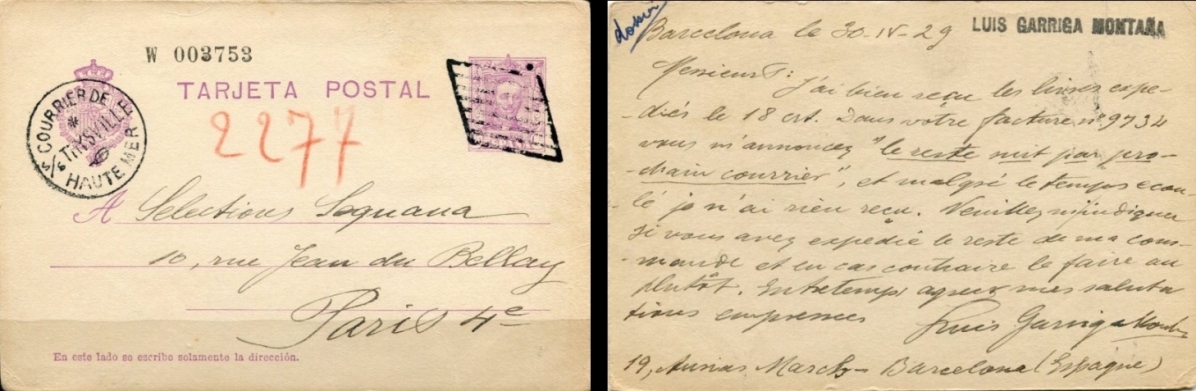 W 003753
TARJETA POSTAL
COURRIER DE HAUTE MER
2277
A Sélections Sequana
10, rue Jean du Bellay
Paris 4e
En este lado se escribe solamente la dirección.
Barcelona le 30-IV-29
LUIS GARRIGA MONTAÑA
Messieurs:
J'ai bien reçu les livres expé-
diés le 18 crt. Dans votre facture nº 9734
vous m'annoncez "le reste suit par pro-
chain courrier", et malgré le temps écou-
lé je n'ai rien reçu. Veuillez m'indiquer
si vous avez expédié le reste de ma com-
mande et en cas contraire le faire au
plutôt. Entretemps agréez mes saluta
tions empressées
Luis Garriga
19, Ausias March - Barcelona (Espagne)